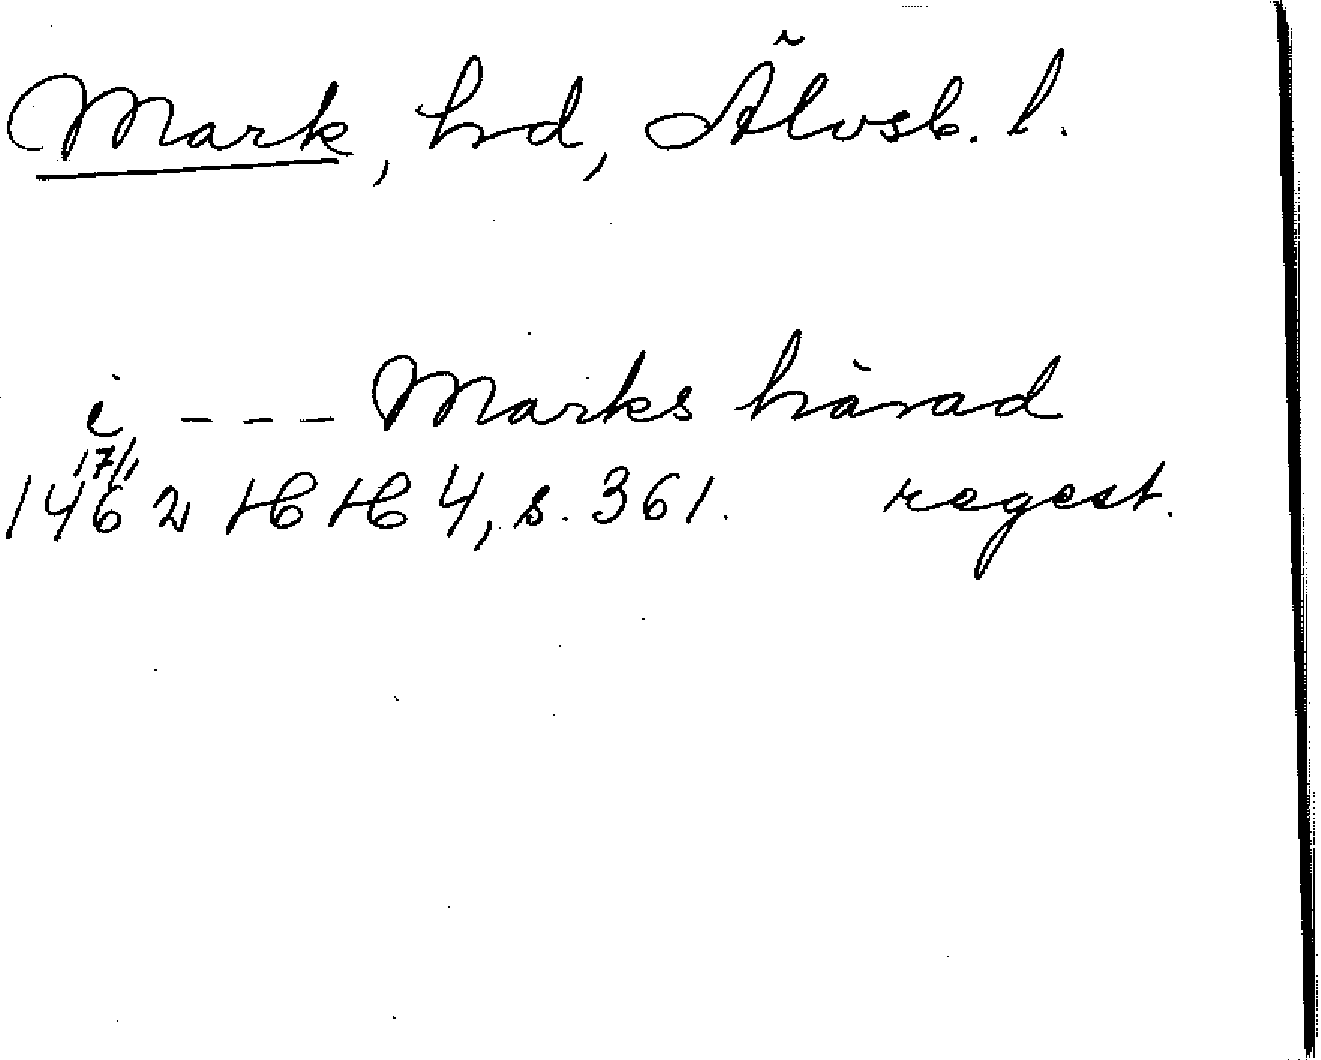 Mark, hd, Älvsb. l.
i --- Marks härad
17/1
1462 HH 4, s. 361. regest.